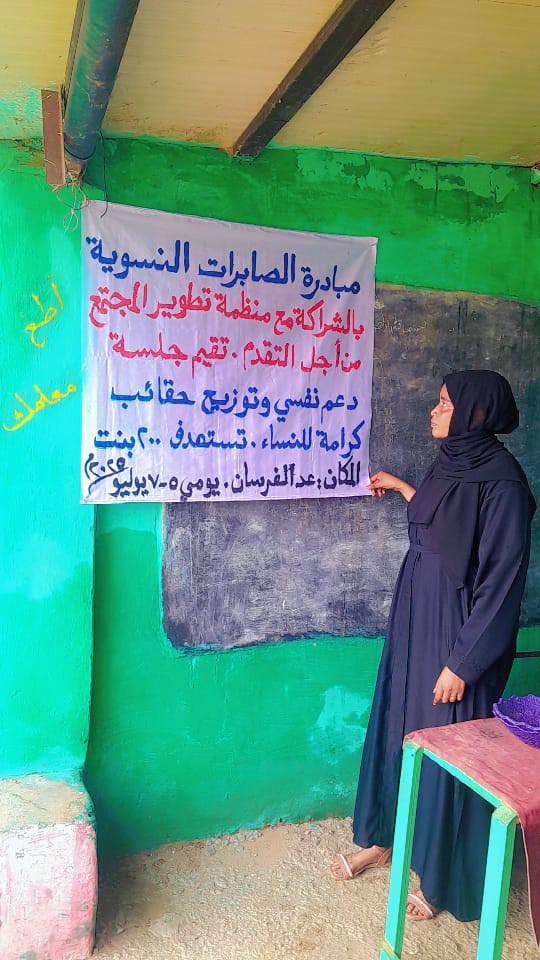 مبادرة الصابرات النسوية
بالشراكة مع منظمة تطوير المجتمع
من أجل التقدم . تقيم جلسة
دعم نفسي وتوزيع حقائب
كرامة للنساء . تستهدف ٢٠٠ بنت
المكان : عد الفرسان . يومي ٥-٧ يوليو ٢٠٢٥م
أطع
معلمك